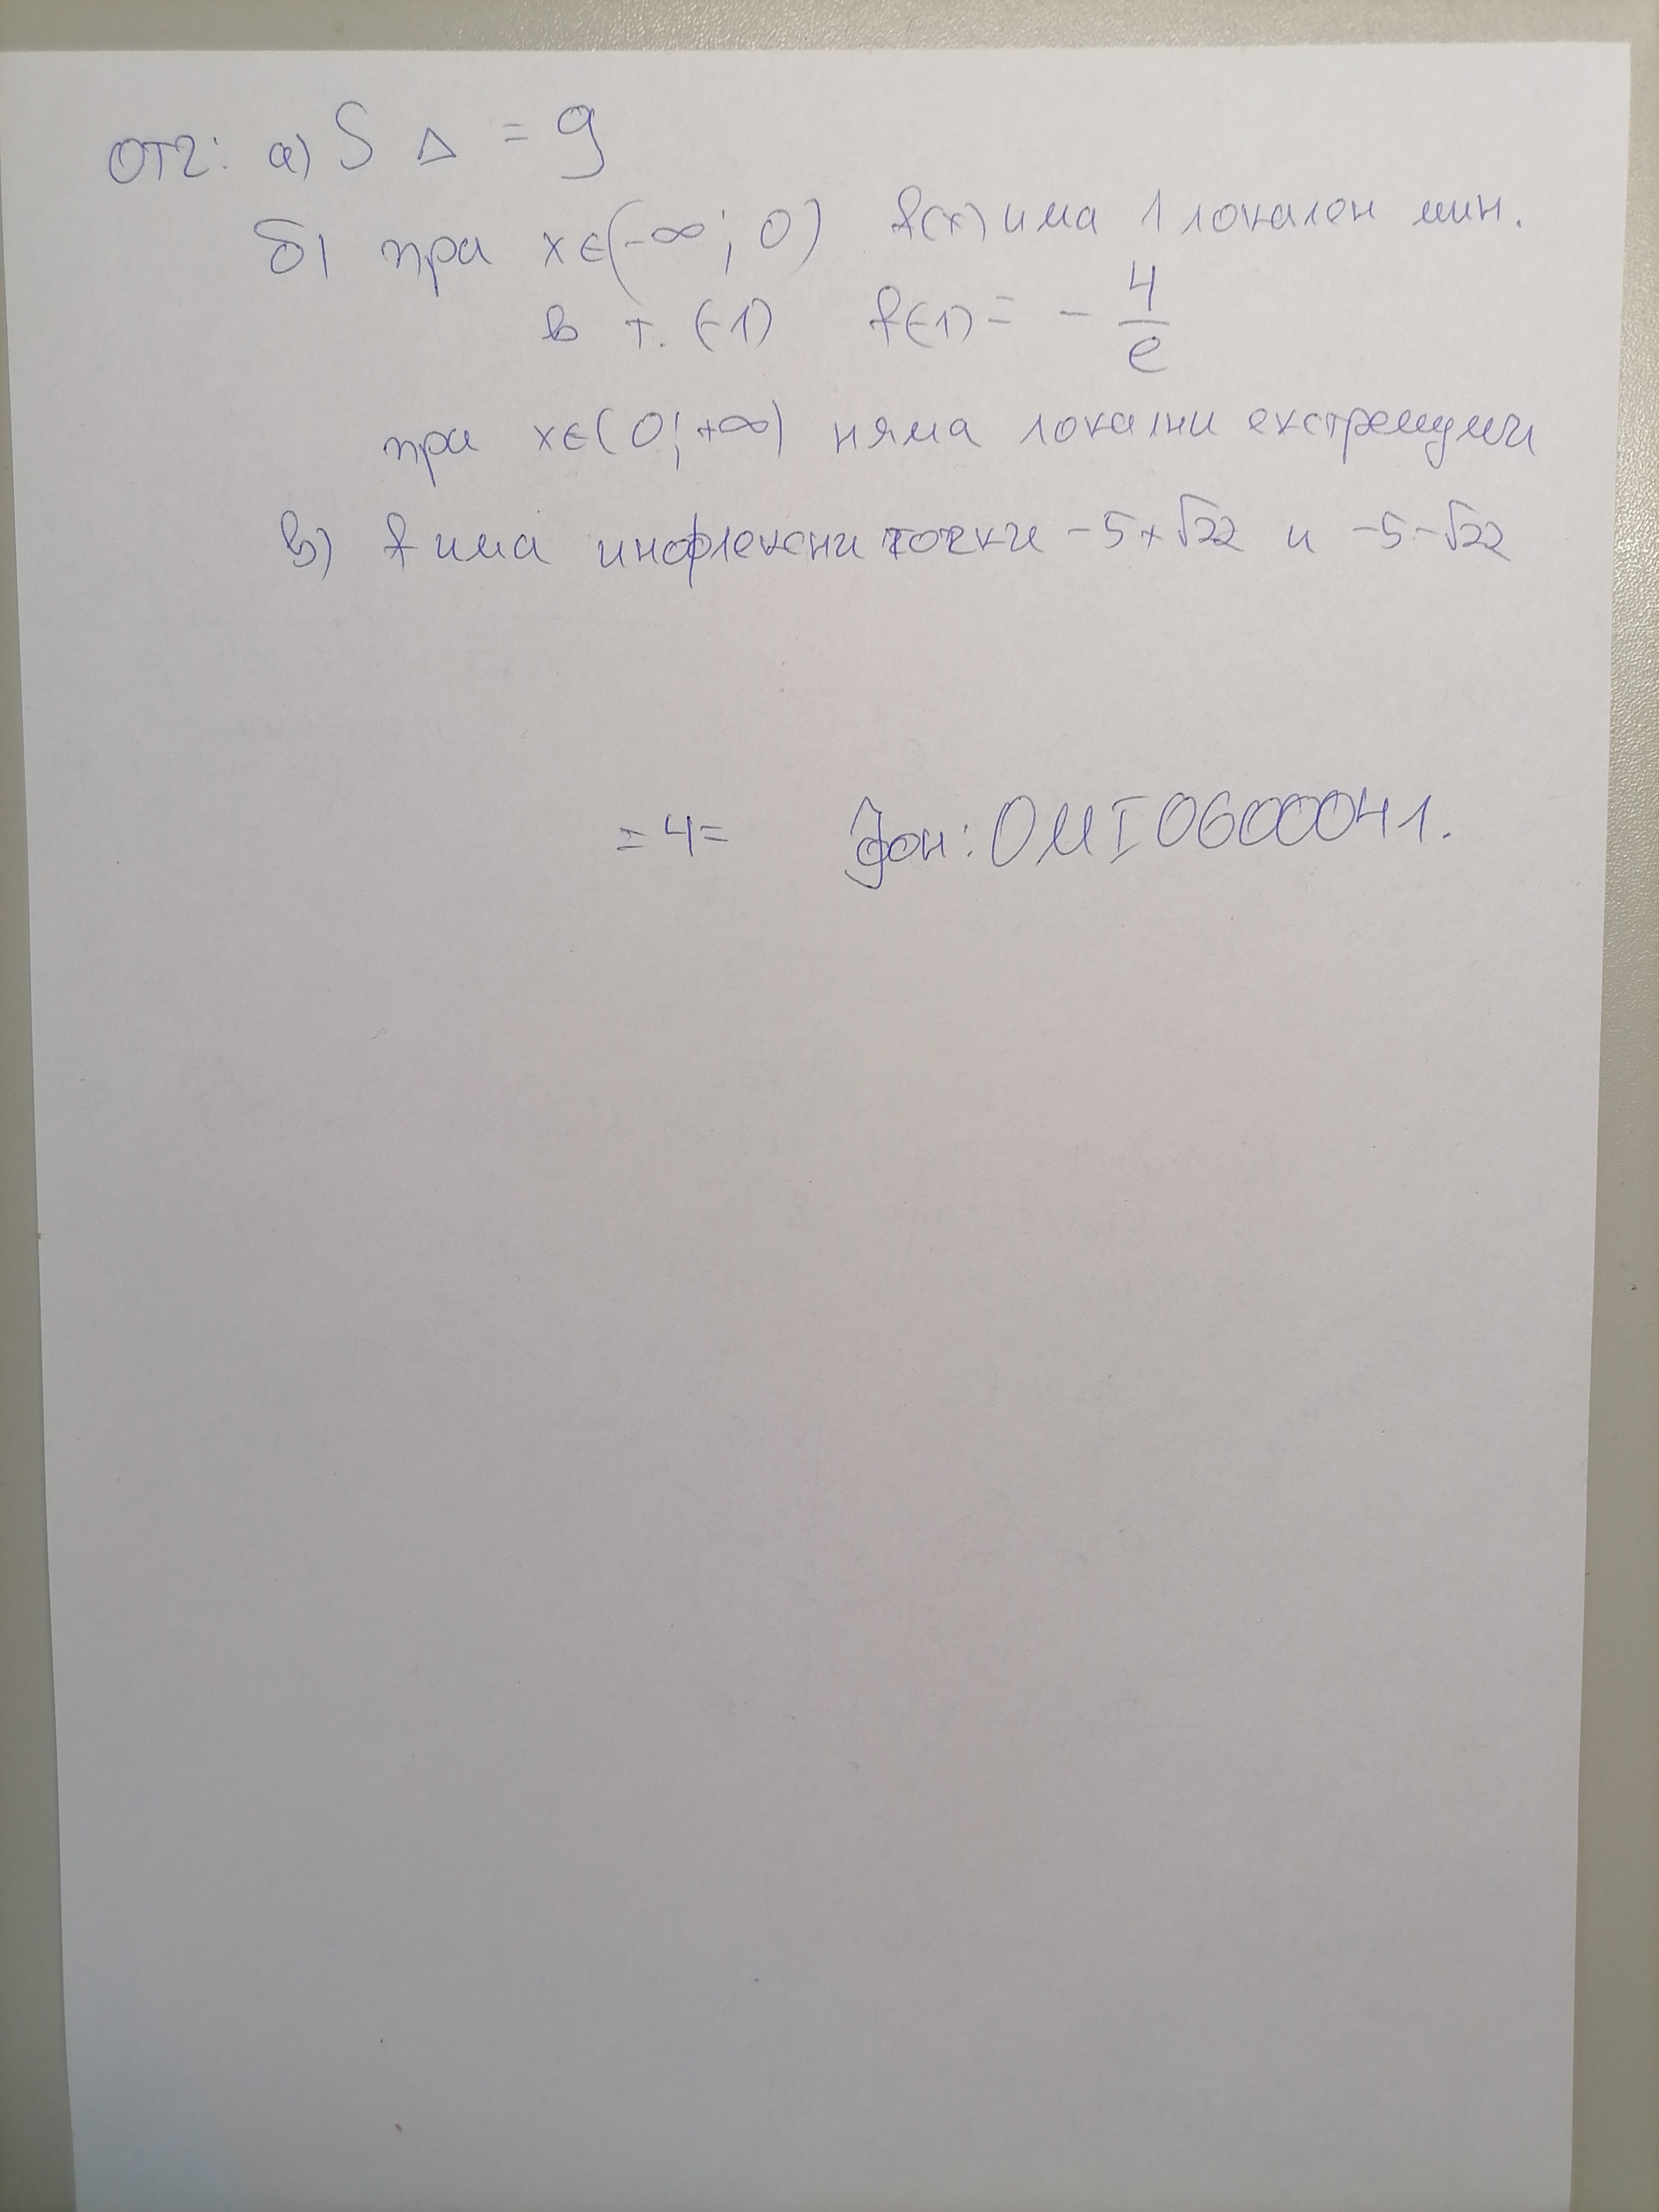 Отг: а) S Δ = 9
б) при x∈(-∞; 0) f(x) има 1 локален мин.
в т. (-1) f(-1) = - 4/e
при x∈(0; +∞) няма локални екстремуми
в) f има инфлексни точки -5+√22 и -5-√22
=4= фон: ОМІ0600041.